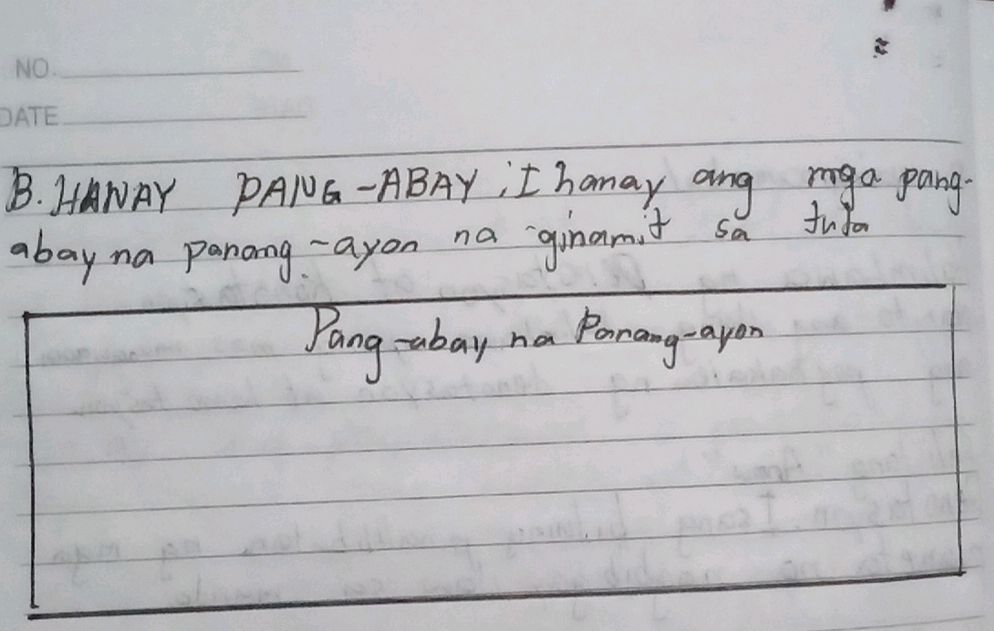 NO.
DATE
B. HANAY PANG-ABAY, I hanay ang mga pang-
abay na panang-ayon na ginamit sa tula
Pang-abay na Panang-ayon